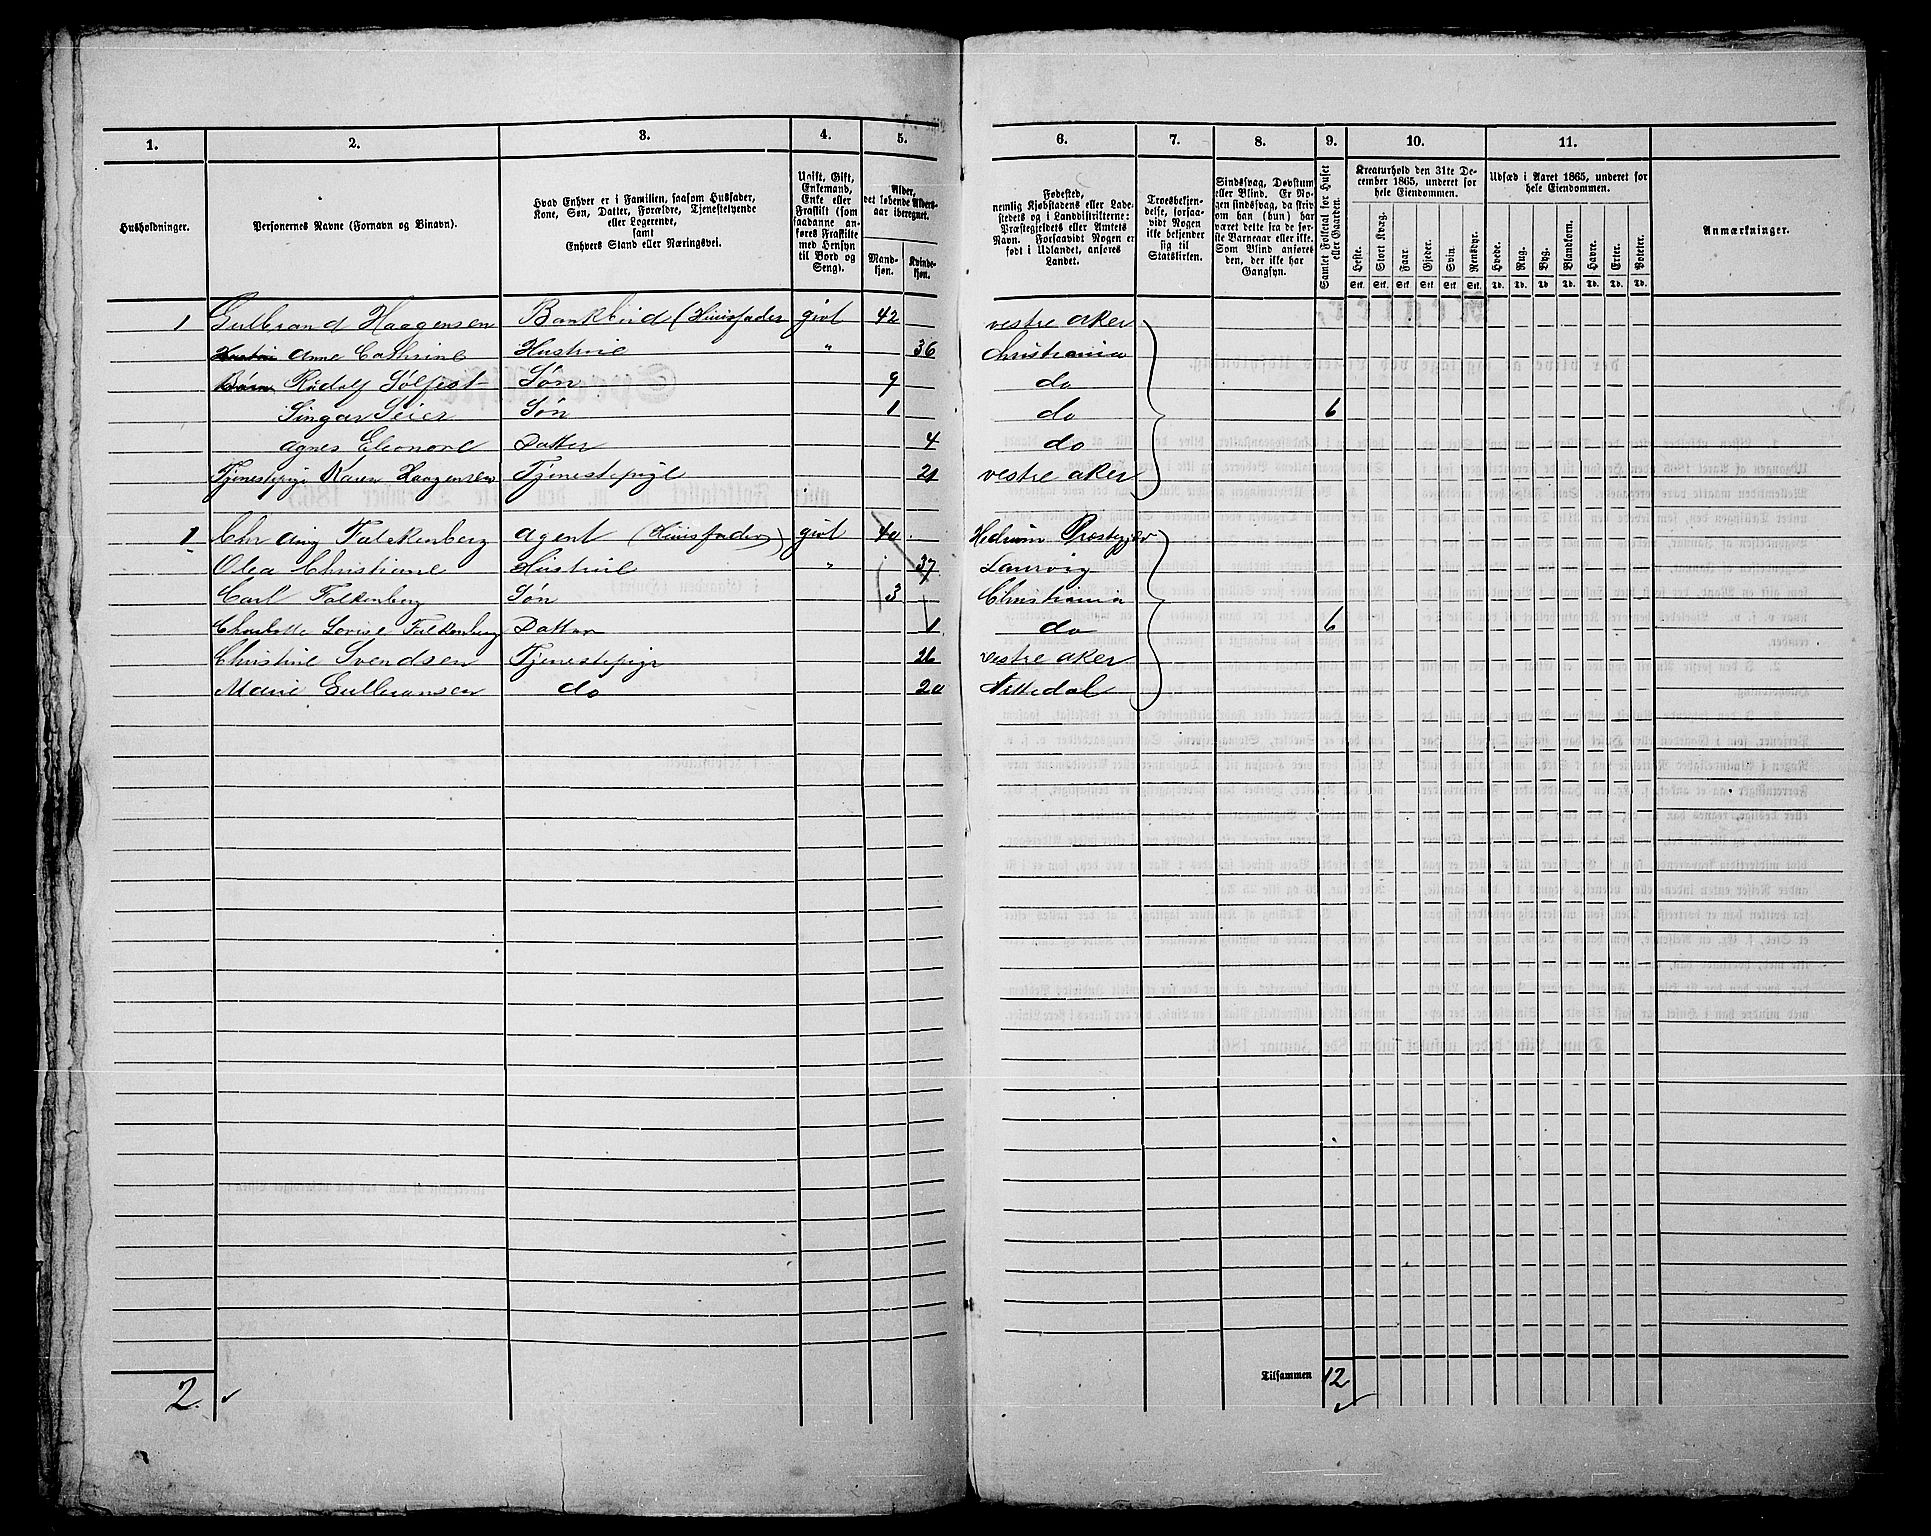 1. 2. 3. 4. 5. 6. 7. 8. 9. 10. 11.
Husholdninger.
Personernes Navne (Fornavn og Binavn).
Hvad Enhver er i Familien, saasom Husfader, Kone, Søn, Datter, Forældre, Tjenestetyende eller Logerende, samt Enhvers Stand eller Næringsvei.
Ugift, Gift, Enkemand, Enke eller Fraskilt (som saadanne anføres Fraskilte med Hensyn til Bord og Seng).
Alder, det løbende Aldersaar iberegnet.
Mandkjøn. Kvindekjøn.
Fødested, nemlig Kjøbstadens eller Ladestedets og i Landdistrikterne: Præstegjeldets eller Amtets Navn. Forsaavidt Nogen er født i Udlandet, anføres Landet.
Troesbekjendelse, forsaavidt Nogen ikke bekjender sig til Statskirken.
Sindssvag, Døvstum eller Blind. Er Nogen sindssvag, da skriv om han (hun) har været dette fra de første Barneaar eller ikke. Som Blind anføres den, der ikke har Gangsyn.
Samlet Folketal for Huset eller Gaarden.
Kreaturhold den 31te December 1865, underet for hele Eiendommen.
Heste. Stort Kvæg. Faar. Gjeder. Svin. Rensdyr.
Stk. Stk. Stk. Stk. Stk. Stk.
Udsæd i Aaret 1865, underet for hele Eiendommen.
Hvede. Rug. Byg. Blandkorn. Havre. Erter. Poteter.
Td. Td. Td. Td. Td. Td. Td.
Anmærkninger.
1 Gulbrand Haagensen Bankbud (Huusfader givt 42 vestre aker
Anne Cathrine Hustrue " 36 Christiania
Børn Rudolf Solfest Søn 9 do
Singar Seier Søn 1 do 6
Agnes Eleonore Datter 4 do
Tjenestepige Karen Haagensen Tjenestepige 21 vestre aker
1 Chr Aug Falkenberg Agent (Huusfader) givt 40 Hedrum
Olea Christiane Hustrue " 37 Laurvig
Carl Falkenberg Søn 3 Christiania
Charlotte Lovise Falkenberg Datter 1 do 6
Christine Svendsen Tjenestepige 26 vestre aker
Marie Gulbransen do 20 Nittedal
2 Tilsammen 12